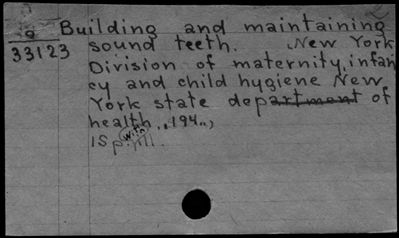 a Building and maintaining
33123 sound teeth. New York
Division of maternity, infan
cy and child hygiene New
York state department of
health, 194
with
15 p.